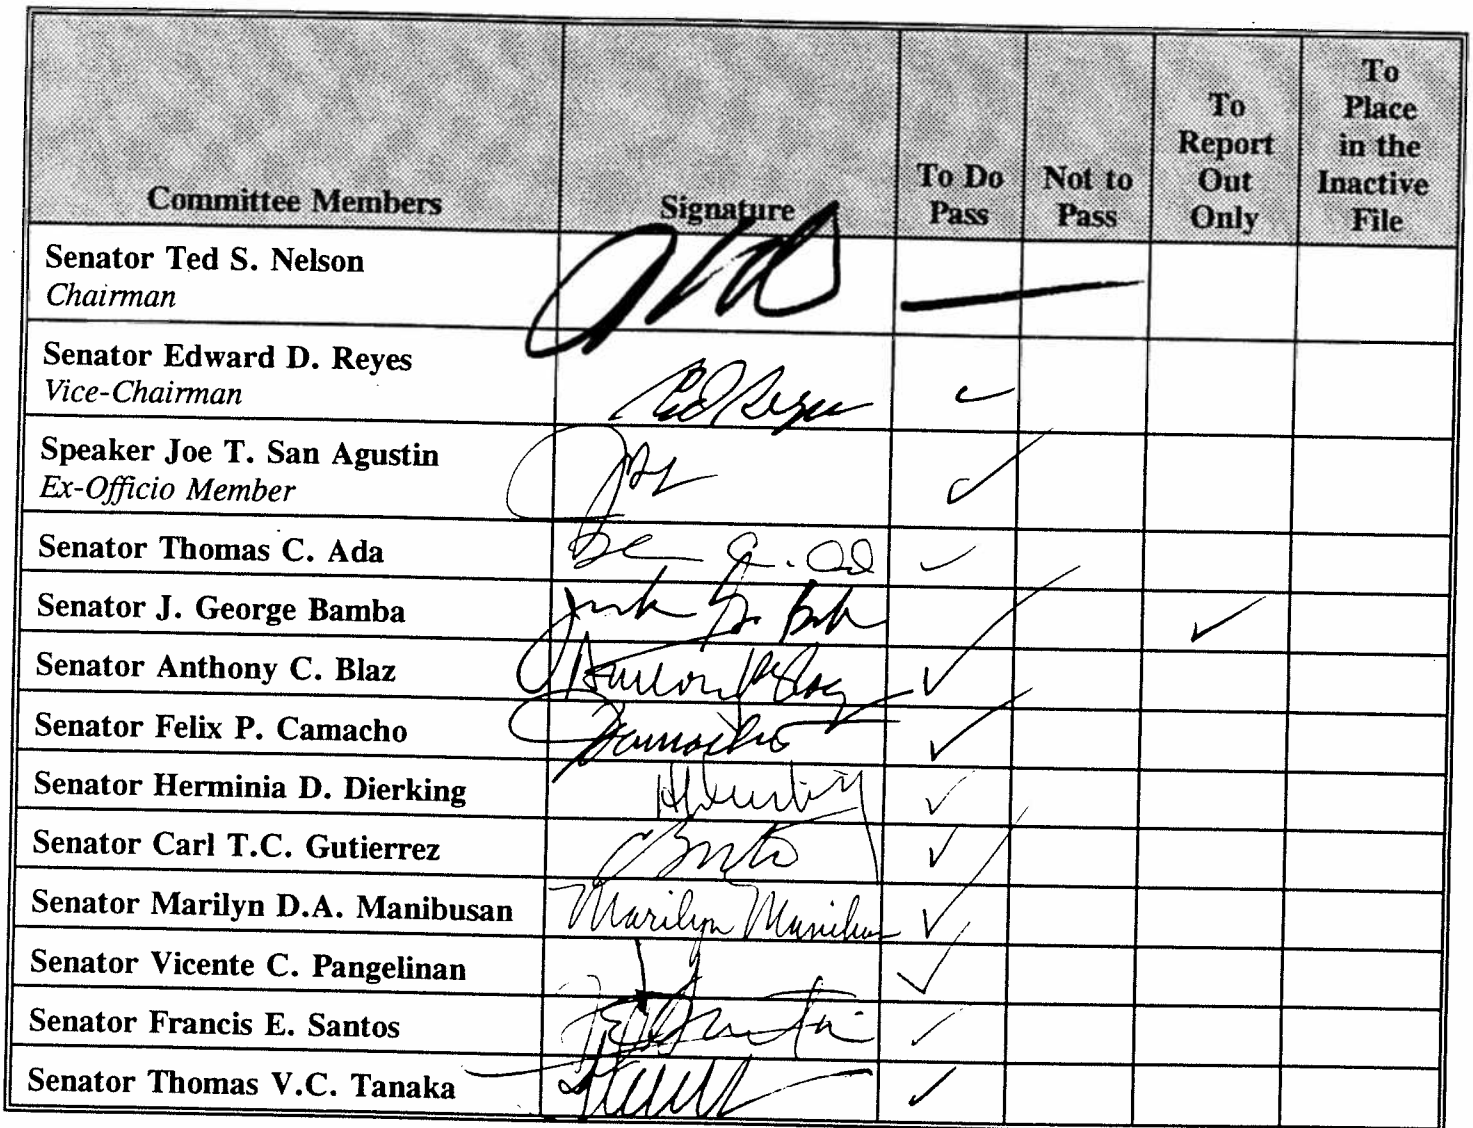 Committee Members
Signature
To Do
Pass
Not to
Pass
To
Report
Out
Only
To
Place
in the
Inactive
File
Senator Ted S. Nelson
Chairman
Senator Edward D. Reyes
Vice-Chairman
Ed Reyes
Speaker Joe T. San Agustin
Ex-Officio Member
Senator Thomas C. Ada
Senator J. George Bamba
Senator Anthony C. Blaz
Senator Felix P. Camacho
Camacho
Senator Herminia D. Dierking
Senator Carl T.C. Gutierrez
Senator Marilyn D.A. Manibusan
Marilyn Manibusan
Senator Vicente C. Pangelinan
Senator Francis E. Santos
Senator Thomas V.C. Tanaka